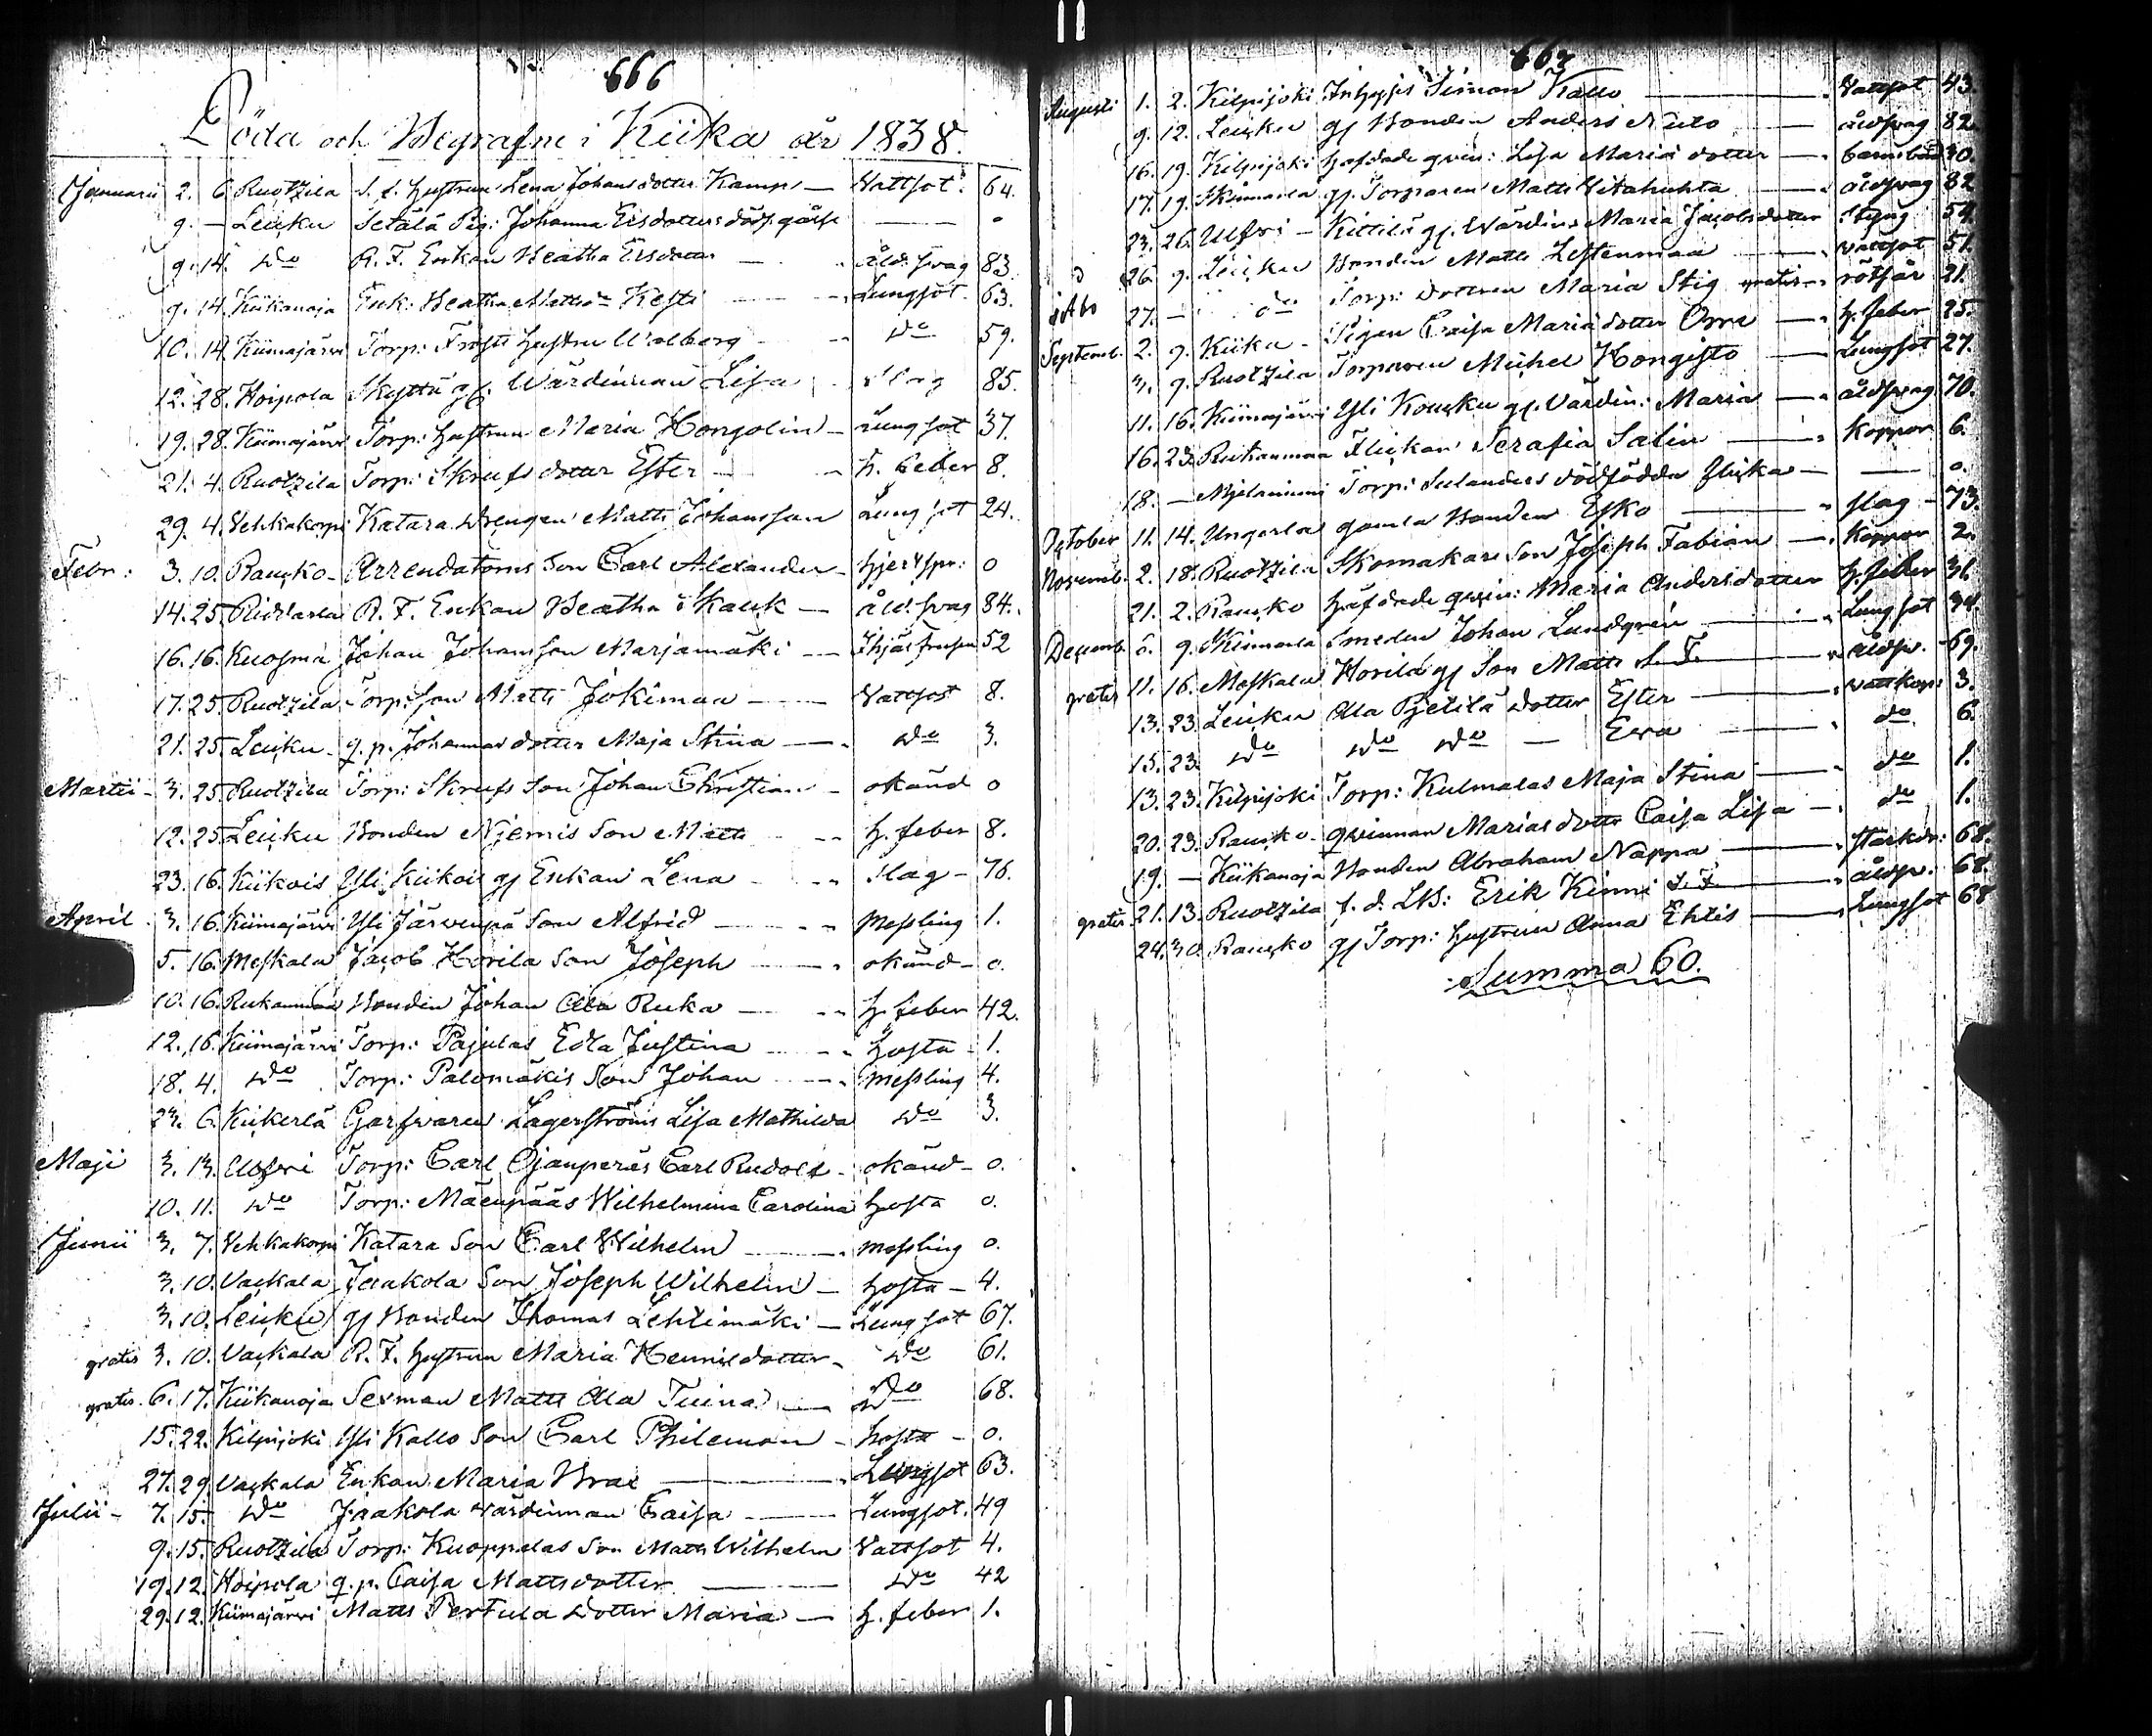 666
Döda och Begrafne i Kiika år 1838.
Januarii 2. 6. Ruotzila S. f. hustrun Lena Johans dotter Kamp — Vattsot 64.
9. — Leiuku Setälä Pig: Johanna Ersdotters dödf. gåsse — — o
9. 14. do R. F. Enkan Beatha Ersdotter — åld. svag 83
9. 14. Kiikanoja Enk: Beatha Mattsdr Kesti — Lungsot 63.
10. 14. Kiimajärvi Torp: Frosts hustru Walborg — do 59.
12. 28. Hoipola Skyttä gl. Wärdinnan Lisa — slag 85.
19. 28. Kiimajärvi Torp: hustrun Maria Hongolin — Lungsot 37.
21. 4. Ruotzila Torp: Skrufs dotter Ester — h. feber 8.
29. 4. Vehkakorpi Katara Drengen Matts Johansson Lungsot 24.
Febr: 3. 10. Rausko — Arrendatorns Son Carl Alexander — hjertspr: o
14. 25. Ridvarla R. F. Enkan Beatha Skauk — åld. svag 84.
16. 16. Kuosma Johan Johansson Marjamäki — Ihjälfrusen 52
17. 25. Ruotzila Torp: Son Matts Jokimaa — Vattsot 8.
21. 25. Leuku — q. p. Johannas dotter Maja Stina — do 3.
Martii — 3. 25. Ruotzila Torp: Skrufs Son Johan Christian — okänd o
12. 25. Leuku Bonden Njemis Son Matts — h. feber 8.
23. 16. Kiikois Yli Kiikois gl Enkan Lena — slag — 76.
April 3. 16. Kiimajärvi Yli Järvenpä Son Alfred — Messling 1.
5. 16. Meskala Jacob Horila Son Joseph — okänd — o.
10. 16. Ruikanmaa Bonden Johan Ala Ruka — h. feber 42.
12. 16. Kiimajärvi Torp: Pajulas Edla Justina — hosta — 1.
18. 4. do Torp: Palomäkis Son Johan — messling 4.
23. 6. Kiikerlä Garfvaren Lagerströms Lisa Mathilda do 3.
Maji 3. 13. Ulfvi Torp: Carl Ojanperäs Carl Rudolf — okänd — o.
10. 11. do Torp: Mäenpääs Wilhelmina Carolina hosta o.
Junii 3. 7. Vehkakorpi Katara Son Carl Wilhelm — messling o.
3. 10. Vaskala Jaakola Son Joseph Wilhelm — hosta — 4.
3. 10. Leuku gl Bonden Thomas Lehtimäki — Lungsot 67.
gratis 3. 10. Vaskala R. F. hustrun Maria Hennisdotter — do 61.
gratis 6. 17. Kiikanoja Sexman Matts Ala Tuina — do 68.
15. 22. Kilpijoki Yli Kallo Son Carl Philemon — hosta — o.
27. 29. Vaskala Enkan Maria Brax — Lungsot 63.
Julii — 7. 15. do Jaakola värdinnan Caisa — Lungsot. 49
9. 15. Ruotzila Torp: Kuoppalas Son Matts Wilhelm Vattsot 4.
19. 12. Hoipola q. p. Caisa Mattsdotter — do 42
29. 12. Kiimajärvi Matts Perttula dotter Maria — h. feber 1.
667
Augusti 1. 2. Kilpijoki Inhyses Simon Kallo — Vattsot 43.
9. 12. Leuku gl Bonden Anders Niuto — åldsvag 82.
16. 19. Kilpijoki häfdade qvin: Lisa Maria dotter — barnsbörd 30.
17. 19. Kinnarla gl. Torparen Matts Vitahuhta — åldsvag 82
23. 26. Ulfvi — Kittilä gl. Wärdin: Maria Jacobsdotter styng 54.
26. 9. Leuku Bonden Matts Lestenmaa — vattsot 51.
i Åbo 27. — do Torp: dottren Maria Stig gratis — rötfär 21.
Septemb. 2. 9. Kiika — Pigan Caisa Maria dotter Orra — h. feber 25.
3. 9. Ruotzila Torparen Michel Hongisto — Lungsot 27.
11. 16. Kiimajärvi Yli Kouku gl. Värdin: Maria — åldsvag 70.
16. 23. Ruikanmaa Flickan Serafia Salin — Koppor 6.
18. — Mjelaniemi Torp: Selanders dödfödda flicka — — o.
October 11. 14. Ungerla gamla Bonden Esko — slag — 73.
Novemb. 2. 18. Ruotzila Skomakare Son Joseph Fabian — Koppor 2.
21. 2. Rausko häfdade qvin: Maria Andersdotter h. feber 31.
Decemb. 6. 9. Kinnarla Smeden Johan Lundgren — Lungsot 34.
gratis 11. 16. Meskala Horila gl Son Matts S. F. — åldsv. — 69.
13. 23. Leuku Ala Pjetilä dotter Ester — vattkop: 3.
15. 23. do do do — Eva — do 6
13. 23. Kilpijoki Torp: Kulmalas Maja Stina — do 1.
20. 23. Rausko — qvinnan Marias dotter Caisa Lisa — do 1.
19. — Kiikanoja Bonden Abraham Nappa — starkdr: 68.
gratis 21. 13. Ruotzila f. d. LB: Erik Kinni F. F. — åldsv. 68.
24. 30. Rausko gl Torp: hustrun Anna Ehtis — Lungsot 68
Summa 60.